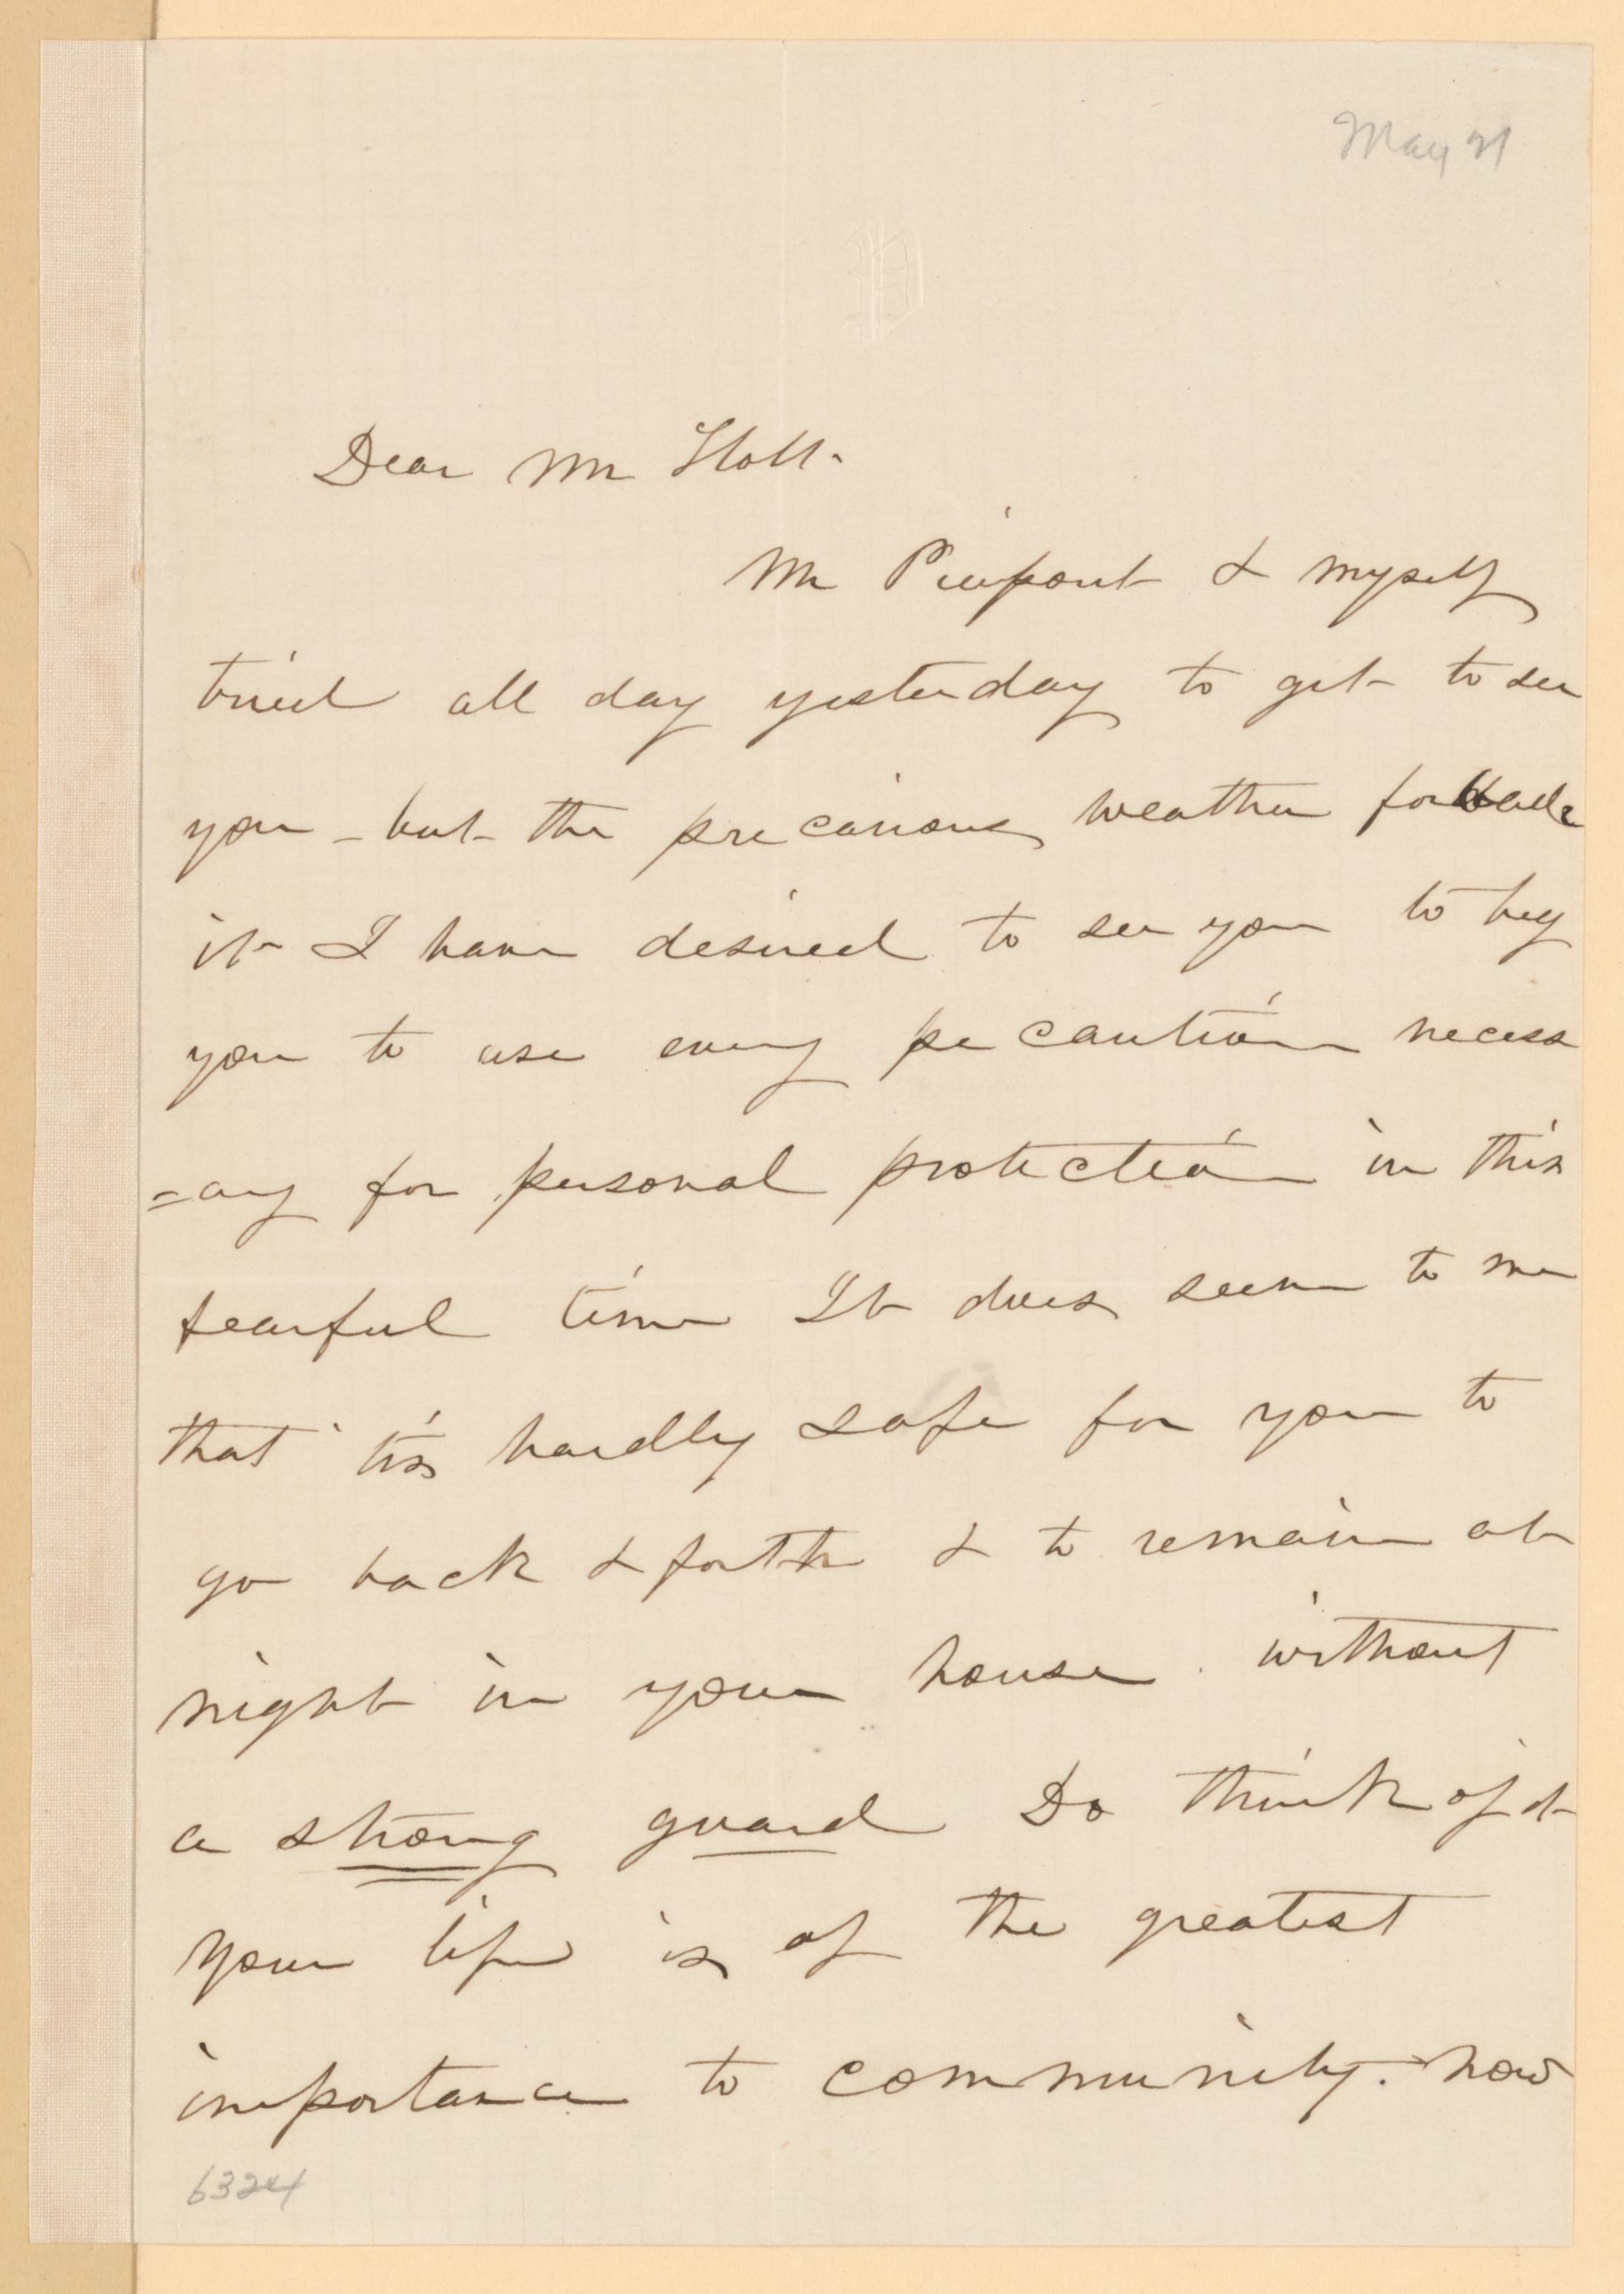 May 21
P
Dear Mr Holt.
Mr Pierpont & myself
tried all day yesterday to get to see
you - but the precarious weather forbade
it I have desired to see you to beg
you to use every pecaution necess
=ary for personal protection in this
fearful time It does seem to me
that 'tis hardly safe for you to
go back & forth & to remain at
night in your house without
a strong guard Do think of it
Your life is of the greatest
importance to community. now
6324